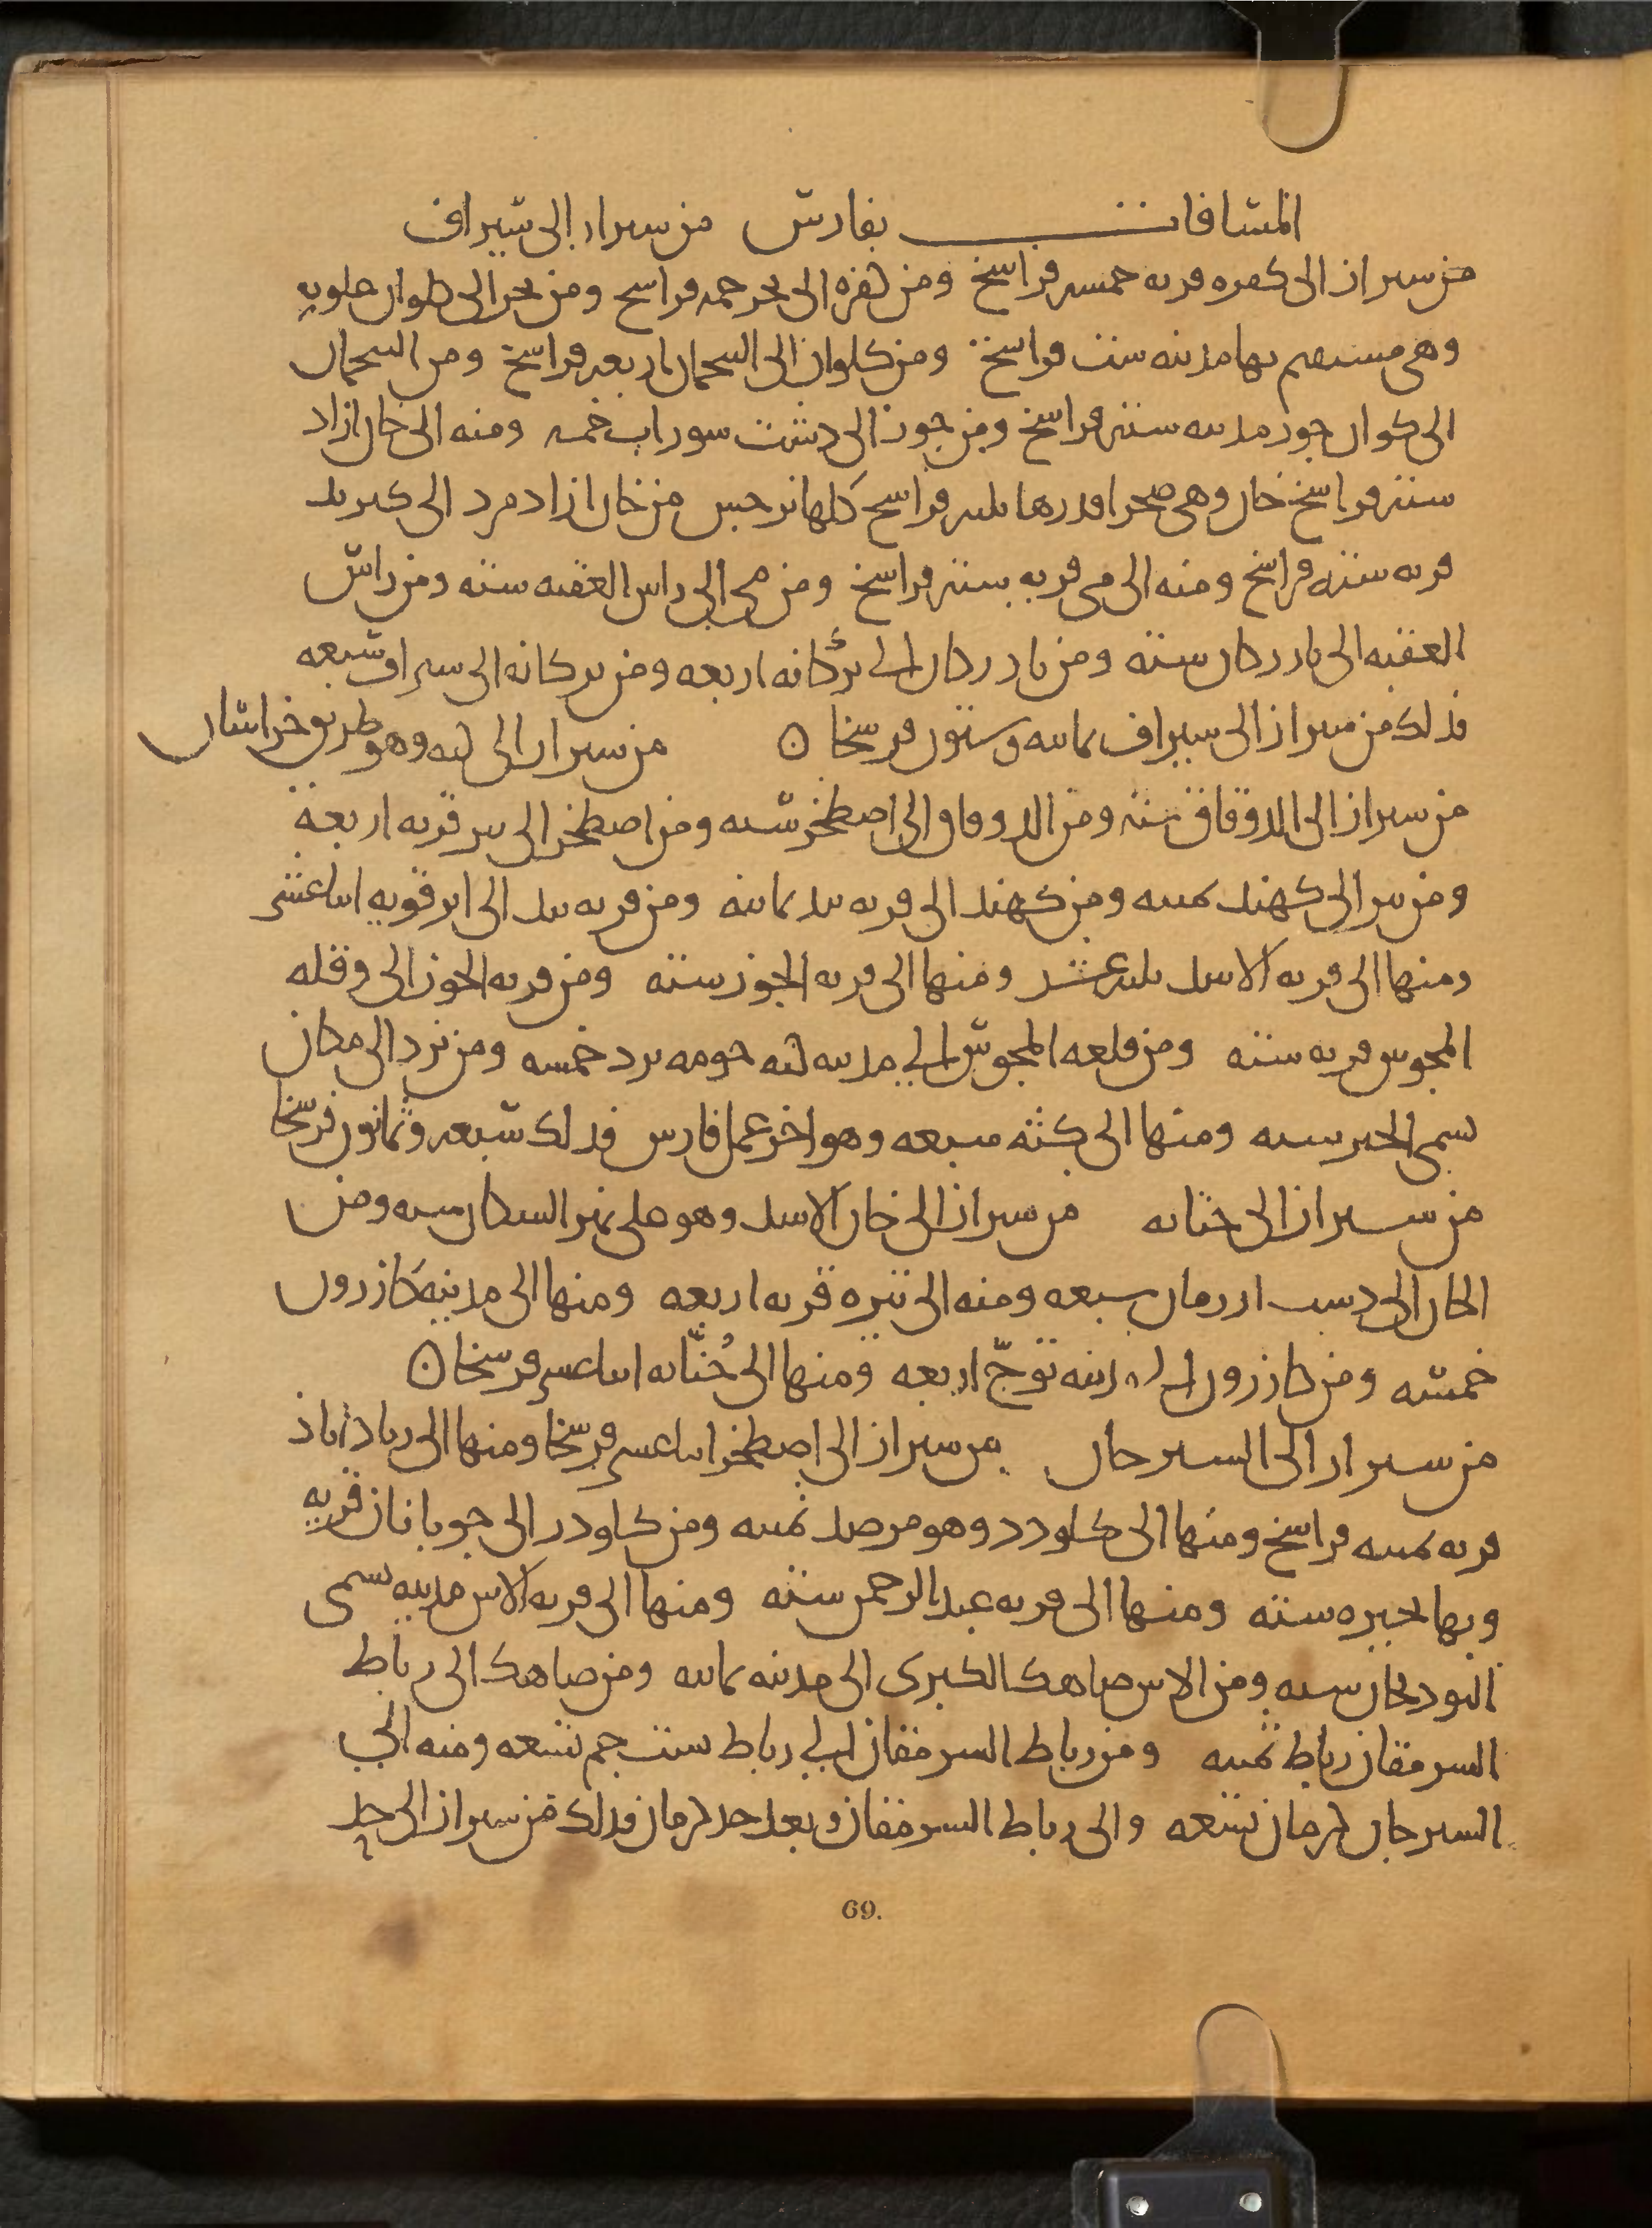 المسافات بفارس من سيراز الى سيراف
من سيراز الى كفره قريه خمسه فراسخ ومن كفره الى بخر خمسه فراسخ ومن بخر الى كلوان علويه
وهى بها مدينه ست فراسخ ومن كلوان الى البنجمان اربعه فراسخ ومن البنجمان
الى كوان جور مدينه سته فراسخ ومن جور الى دشت سوراب خمسه ومنه الى خان ازاد
سته فراسخ خان وهى صحرا قدرها ثلثه فراسخ كلها نرجس من خان ازاد مرد الى كيرند
قريه سته فراسخ ومنه الى مى قريه سته فراسخ ومن مى الى راس العقبه سته ومن راس
العقبه الى بادركان سته ومن بادركان الى بركانه اربعه ومن بركانه الى سيراف سبعه
فذلك من سيراز الى سيراف ثمانيه وستون فرسخا ن من سيراز الى كثه وهو طريق خراسان
من سيراز الى الدوقاق سته ومن الدوقاق الى اصطخر سته ومن اصطخر الى بير قريه اربعه
ومن بير الى كهند ثمنيه ومن كهند الى قريه بيد ثمانيه ومن قريه بيد الى ابرقويه اثنا عشر
ومنها الى قريه الاسد ثلثه عشر ومنها الى قريه الجوز سته ومن قريه الجوز الى وقله
المجوس قريه سته ومن قلعه المجوس الى مدينه كثه حومه يزد خمسه ومن يزد الى مكان
يسمى الحير سته ومنها الى كثه سبعه وهو اخر عمل فارس فذلك سبعه وثمانون فرسخا
من سيراز الى جنابه من سيراز الى خان الاسد وهو على نهر السكان سته ومن
الخان الى دست ارزمان سبعه ومنه الى تيره قريه اربعه ومنها الى مدينه كازرون
خمسه ومن كازرون الى مدينه توّج اربعه ومنها الى جُنّابه اثنا عشر فرسخا ن
من سيراز الى السيرجان من سيراز الى اصطخر اثنا عشر فرسخا ومنها الى زياداباذ
قريه ثمنيه فراسخ ومنها الى كلودر وهو مرصد ثمنيه ومن كلودر الى جوبانان قريه
وبها بحيره سته ومنها الى قريه عبد الرحمن سته ومنها الى قريه الاس مدينه تسمى
البودنجان سته ومن الاس صاهك الكبرى الى مدينه ثمانيه ومن صاهك الى رباط
السرمقان رباط ثمنيه ومن رباط السرمقان الى رباط ست جم تسعه ومنه الى
السيرجان كرمان تسعه والى رباط السرمقان وبعد حد كرمان فذلك من سيراز الى حد
69.